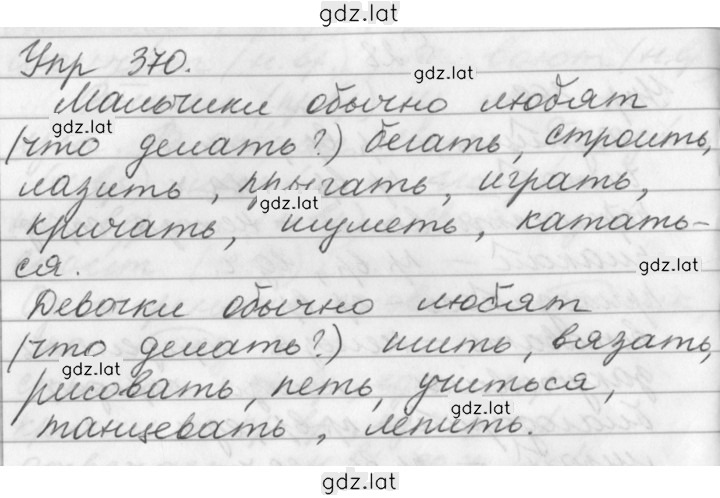 gdz.lat
Упр 370.
gdz.lat
Мальчики обычно любят
gdz.lat
(что делать?) бегать, строить,
лазить, прыгать, играть,
gdz.lat
кричать, шуметь, катать-
ся.
gdz.lat
Девочки обычно любят
(что делать?) шить, вязать,
gdz.lat
рисовать, петь, учиться,
gdz.lat
танцевать, лепить.
gdz.lat